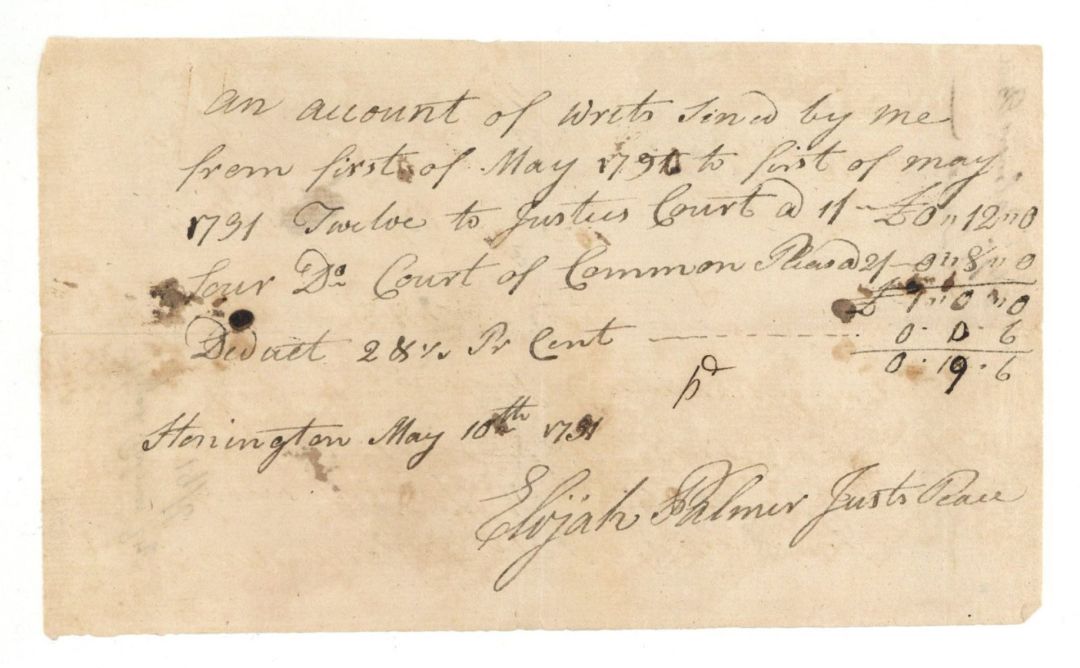 an account of writs sined by me
from first of May 1790 to first of may
1791 Twelve to Justces Court @ 1/ - £0 " 12 " 0
four Do Court of Common Pleas @ 2/ - 0 " 8 " 0
£ 1 " 0 " 0
Deduct 2 & ½ Pr Cent 0 . 0 . 6
0 . 19 . 6
pd
Stonington May 10th 1791
Elijah Palmer Justs Peace